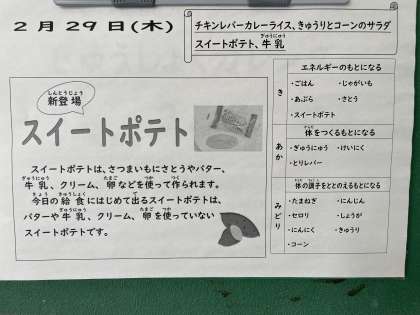 2月29日(木)
チキンレバーカレーライス、きゅうりとコーンのサラダ
スイートポテト、牛乳
ぎゅうにゅう
しんとうじょう
新登場
スイートポテト
スイートポテトは、さつまいもにさとうやバター、
ぎゅうにゅう たまご つか つく
牛乳、クリーム、卵などを使って作られます。
きょう きゅうしょく で
今日の給食にはじめて出るスイートポテトは、
ぎゅうにゅう たまご つか
バターや牛乳、クリーム、卵を使っていない
スイートポテトです。
き
エネルギーのもとになる
・ごはん ・じゃがいも
・あぶら ・さとう
・スイートポテト
あか
からだ
体をつくるもとになる
・ぎゅうにゅう ・けいにく
・とりレバー
みどり
からだ ちょうし
体の調子をととのえるもとになる
・たまねぎ ・にんじん
・セロリ ・しょうが
・にんにく ・きゅうり
・コーン